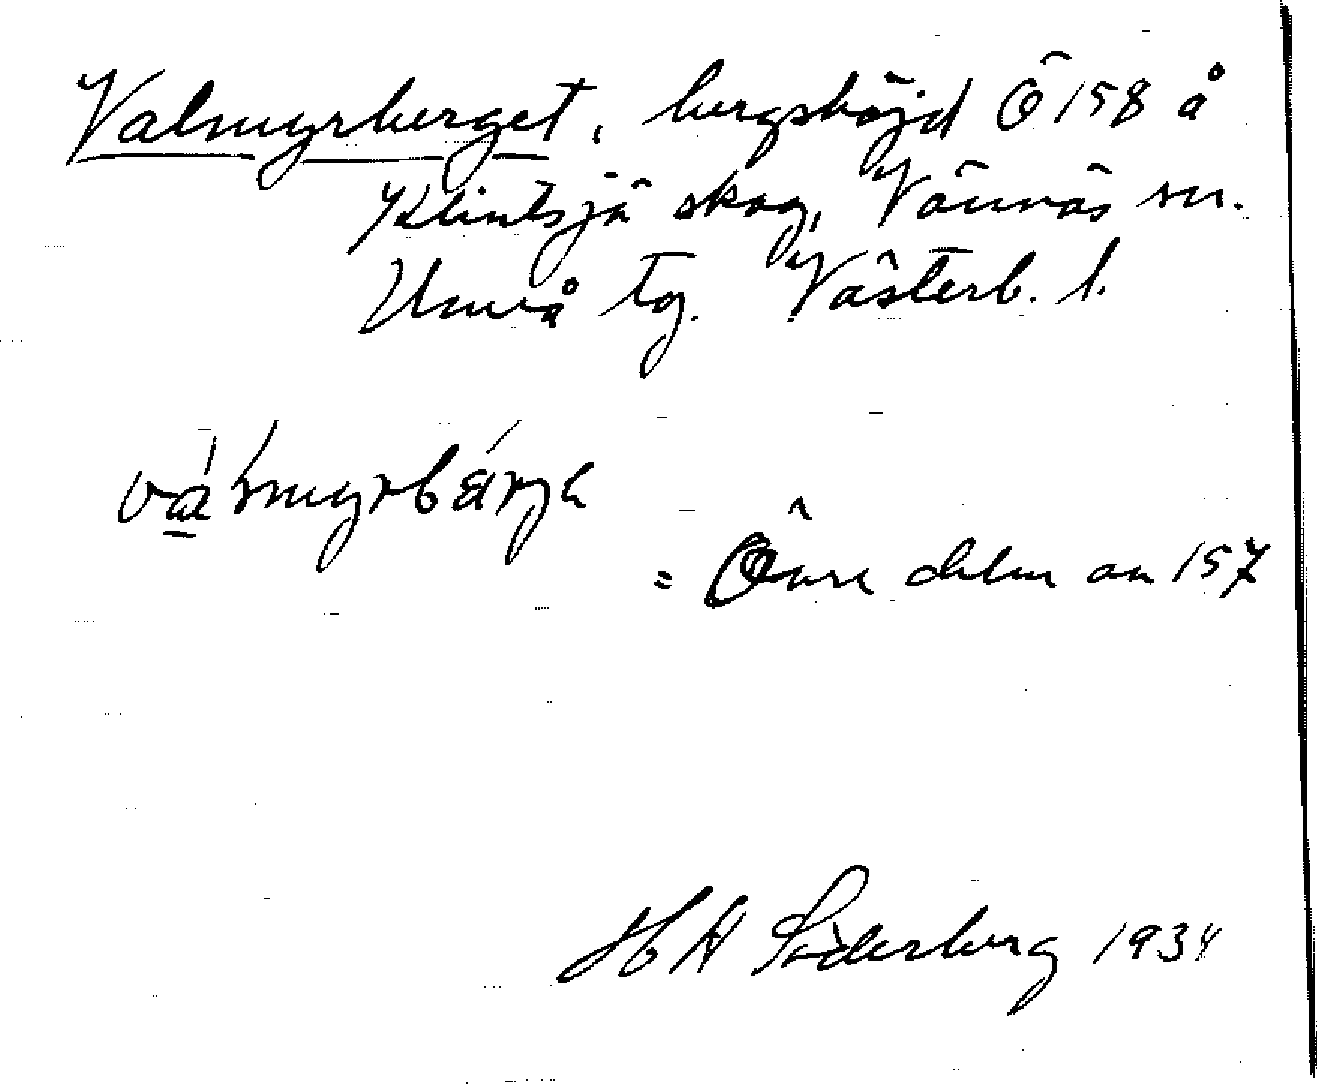 Valmyrberget, bergshöjd Ö 158 å
Klintsjö skog, Vännäs sn.
Umeå tg. Västerb. l.
válmyrbárje
= Övre delen av 157
H A Söderberg 1934